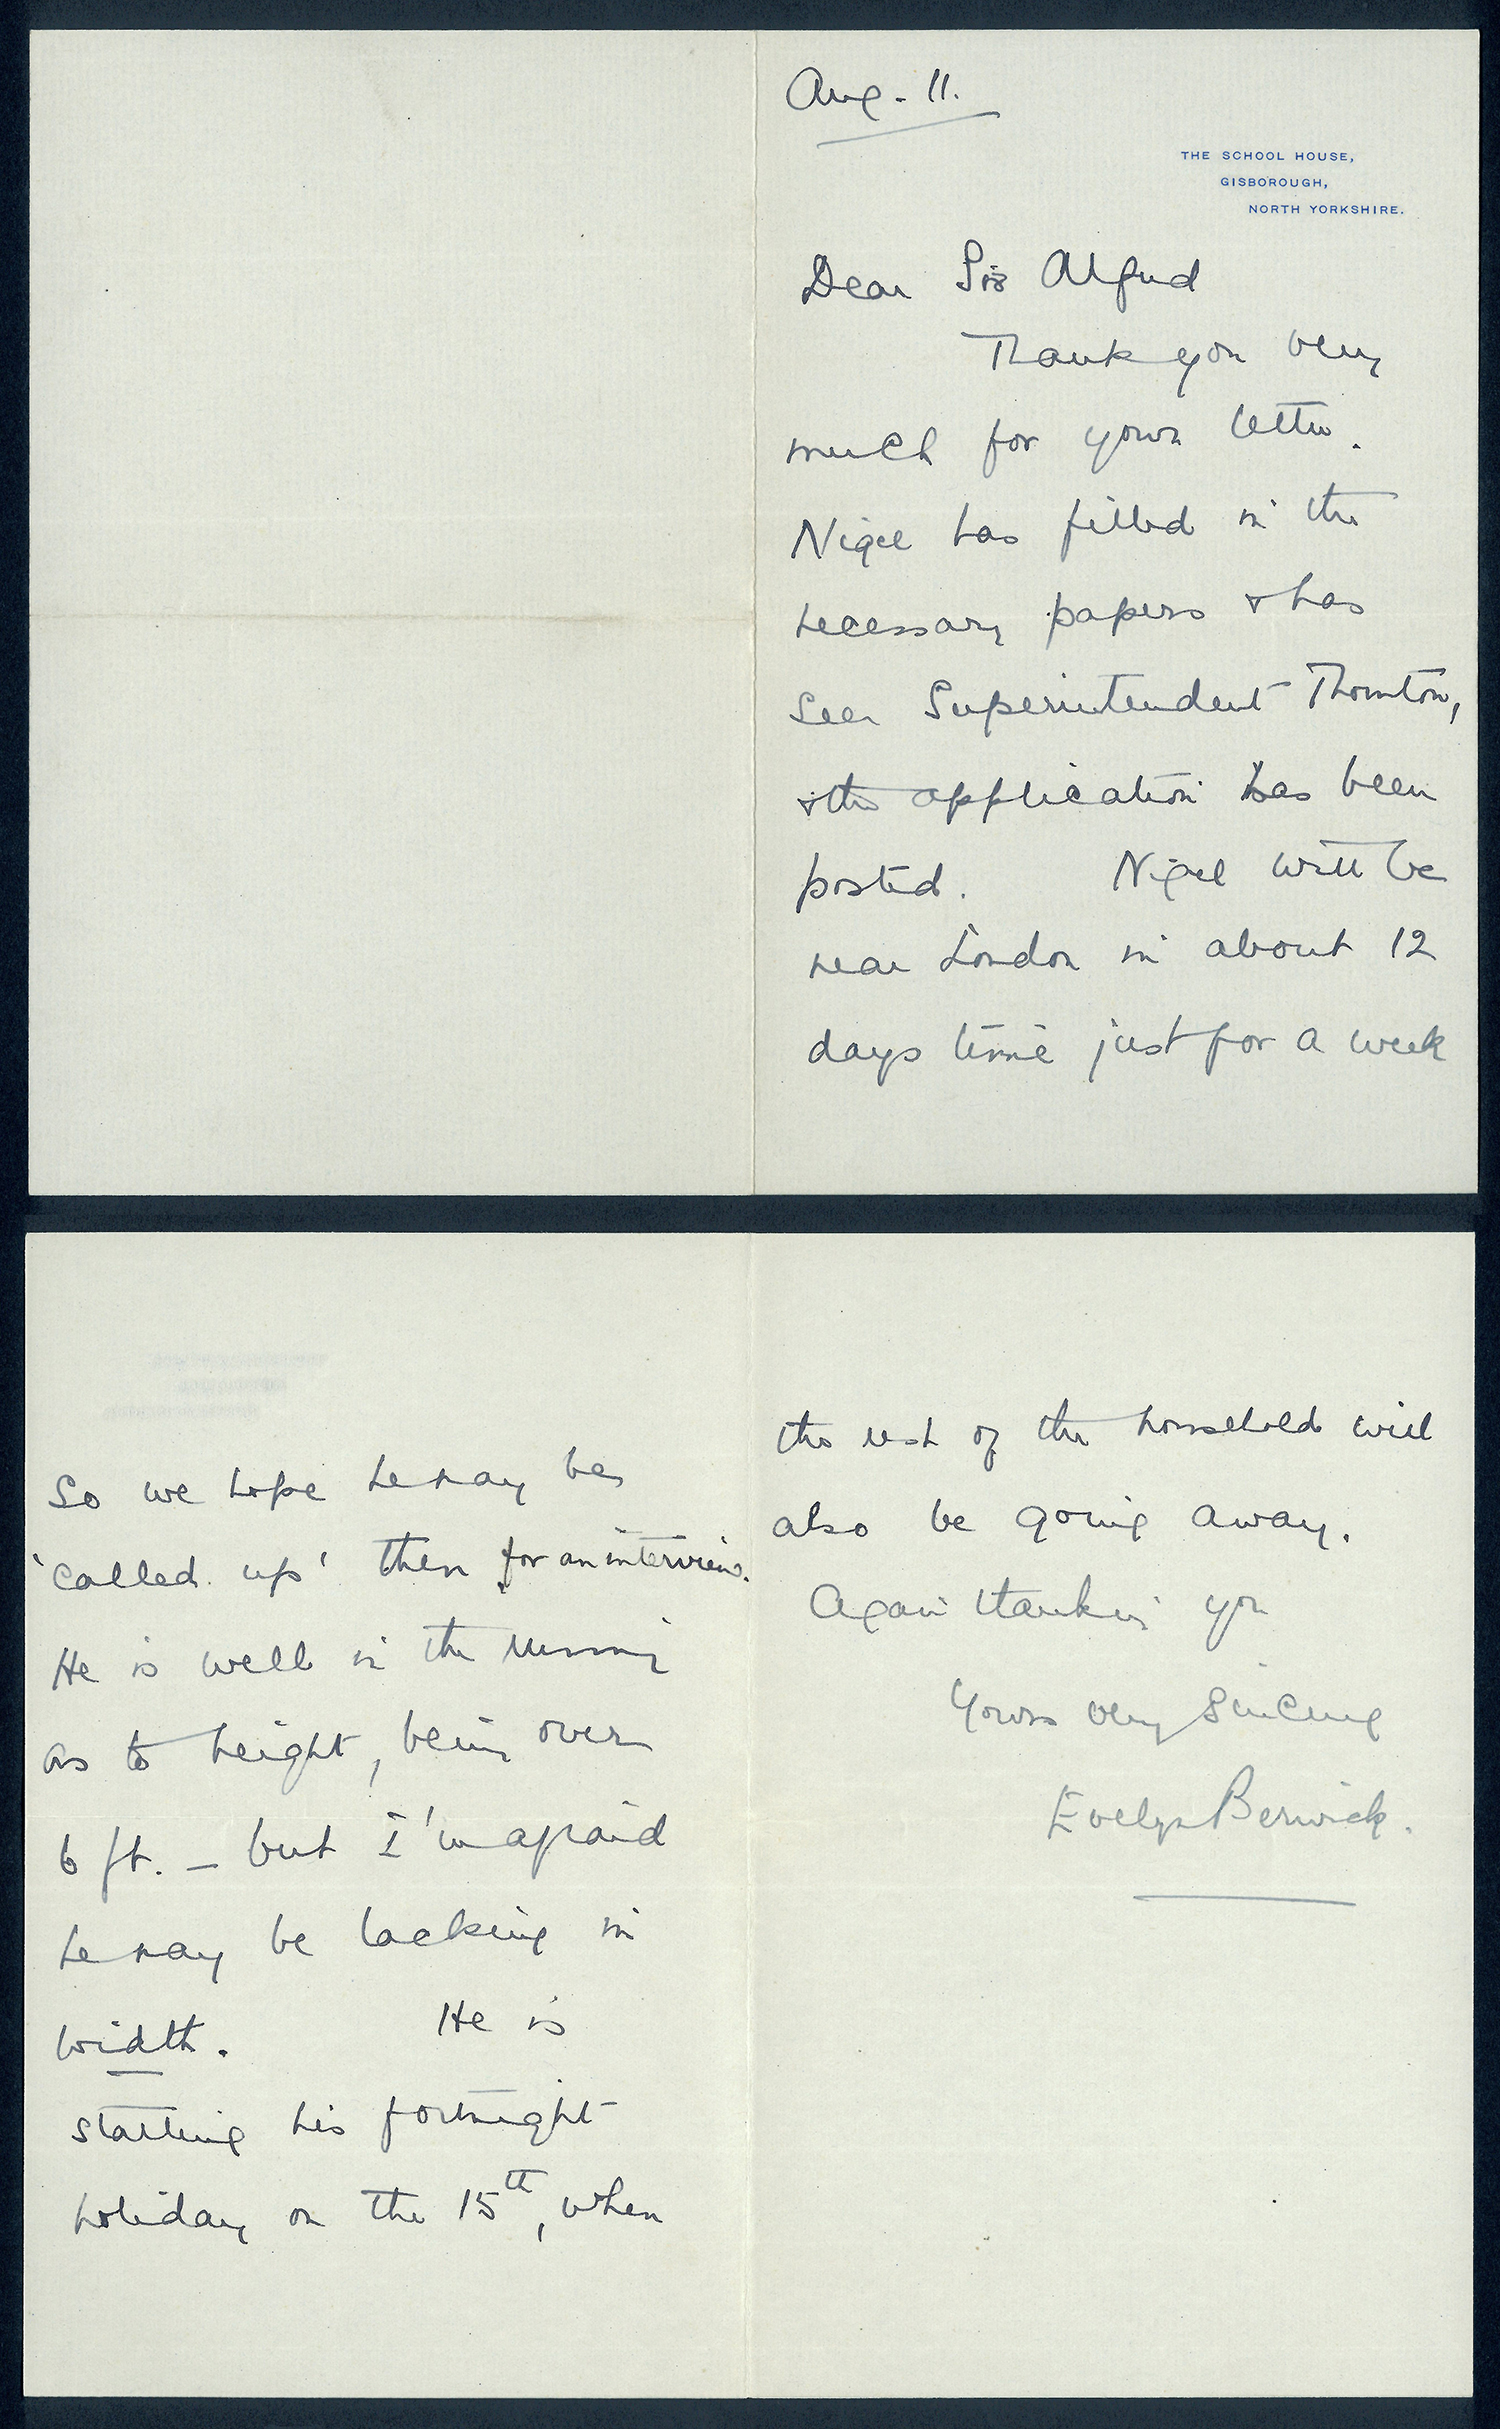 Aug. 11.
THE SCHOOL HOUSE,
GISBOROUGH,
NORTH YORKSHIRE.
Dear Sir Alfred
Thank you very
much for your letter.
Nigel has filled in the
necessary papers & has
seen Superintendent Thornton,
& the application has been
posted. Nigel will be
near London in about 12
days time just for a week
So we hope he may be
'called up' then for an interview.
He is well in the running
as to height, being over
6 ft. – but I'm afraid
he may be lacking in
width. He is
starting his fortnight
holiday on the 15th, when
the rest of the household will
also be going away.
Again thanking you
Yours very sincerely
Evelyn Berwick.